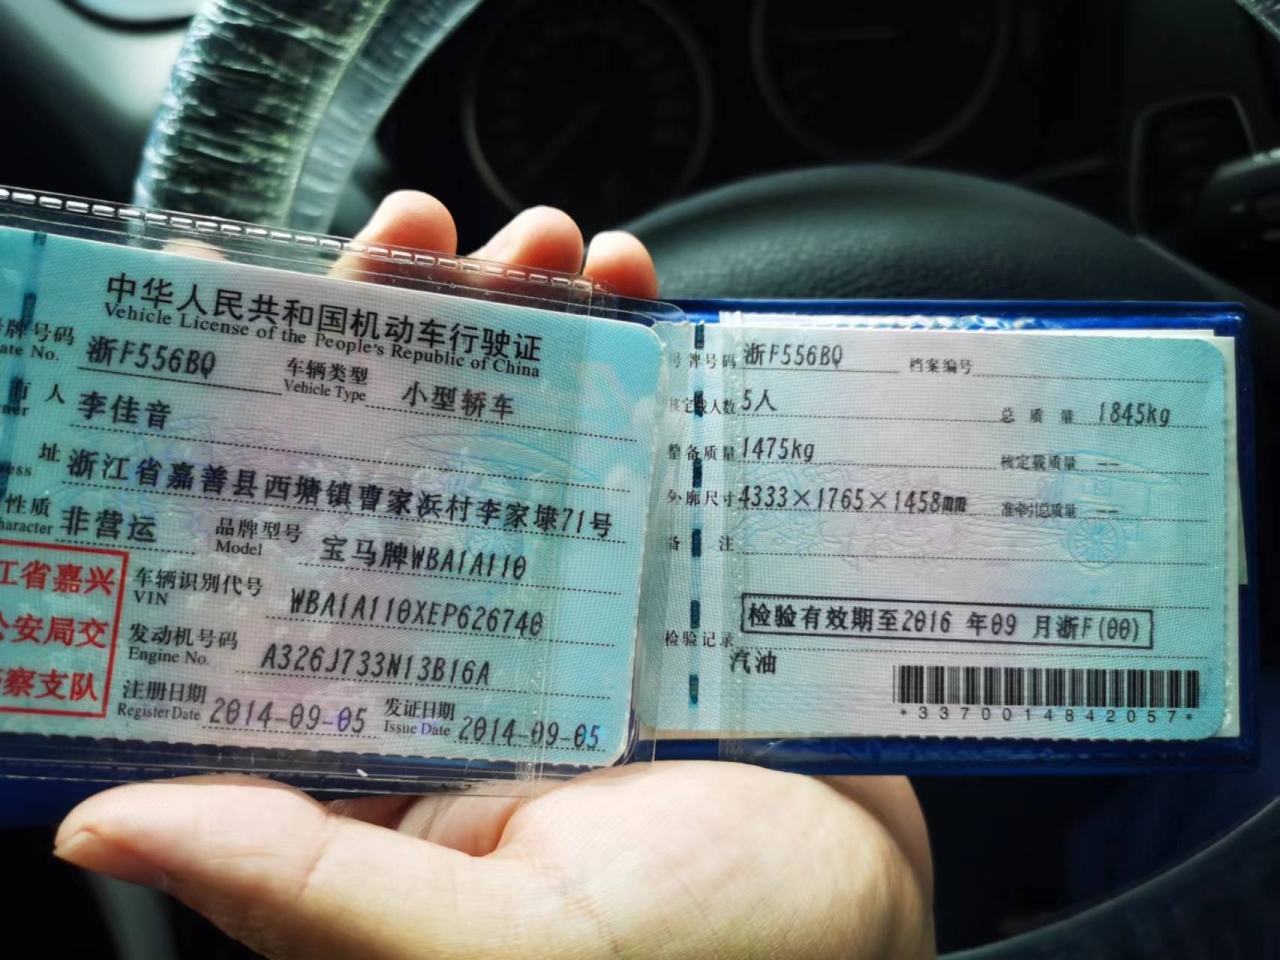 中华人民共和国机动车行驶证
Vehicle License of the People's Republic of China
牌号码 浙F556BQ 车辆类型 小型轿车
ate No. Vehicle Type
有人 李佳音
ner
址 浙江省嘉善县西塘镇曹家浜村李家埭71号
ess
性质 非营运 品牌型号 宝马牌WBA1A110
haracter Model
车辆识别代号 WBA1A110XEP626740
VIN
发动机号码 A326J733N13B16A
Engine No.
注册日期 2014-09-05 发证日期 2014-09-05
Register Date Issue Date
江省嘉兴
公安局交
警察支队
号牌号码 浙F556BQ 档案编号
核定载人数 5人 总质量 1845kg
整备质量 1475kg 核定载质量 --
外廓尺寸 4333×1765×1458mm 准牵引总质量 --
备注
检验有效期至2016 年09 月浙F(00)
检验记录
汽油
*3370014842057*